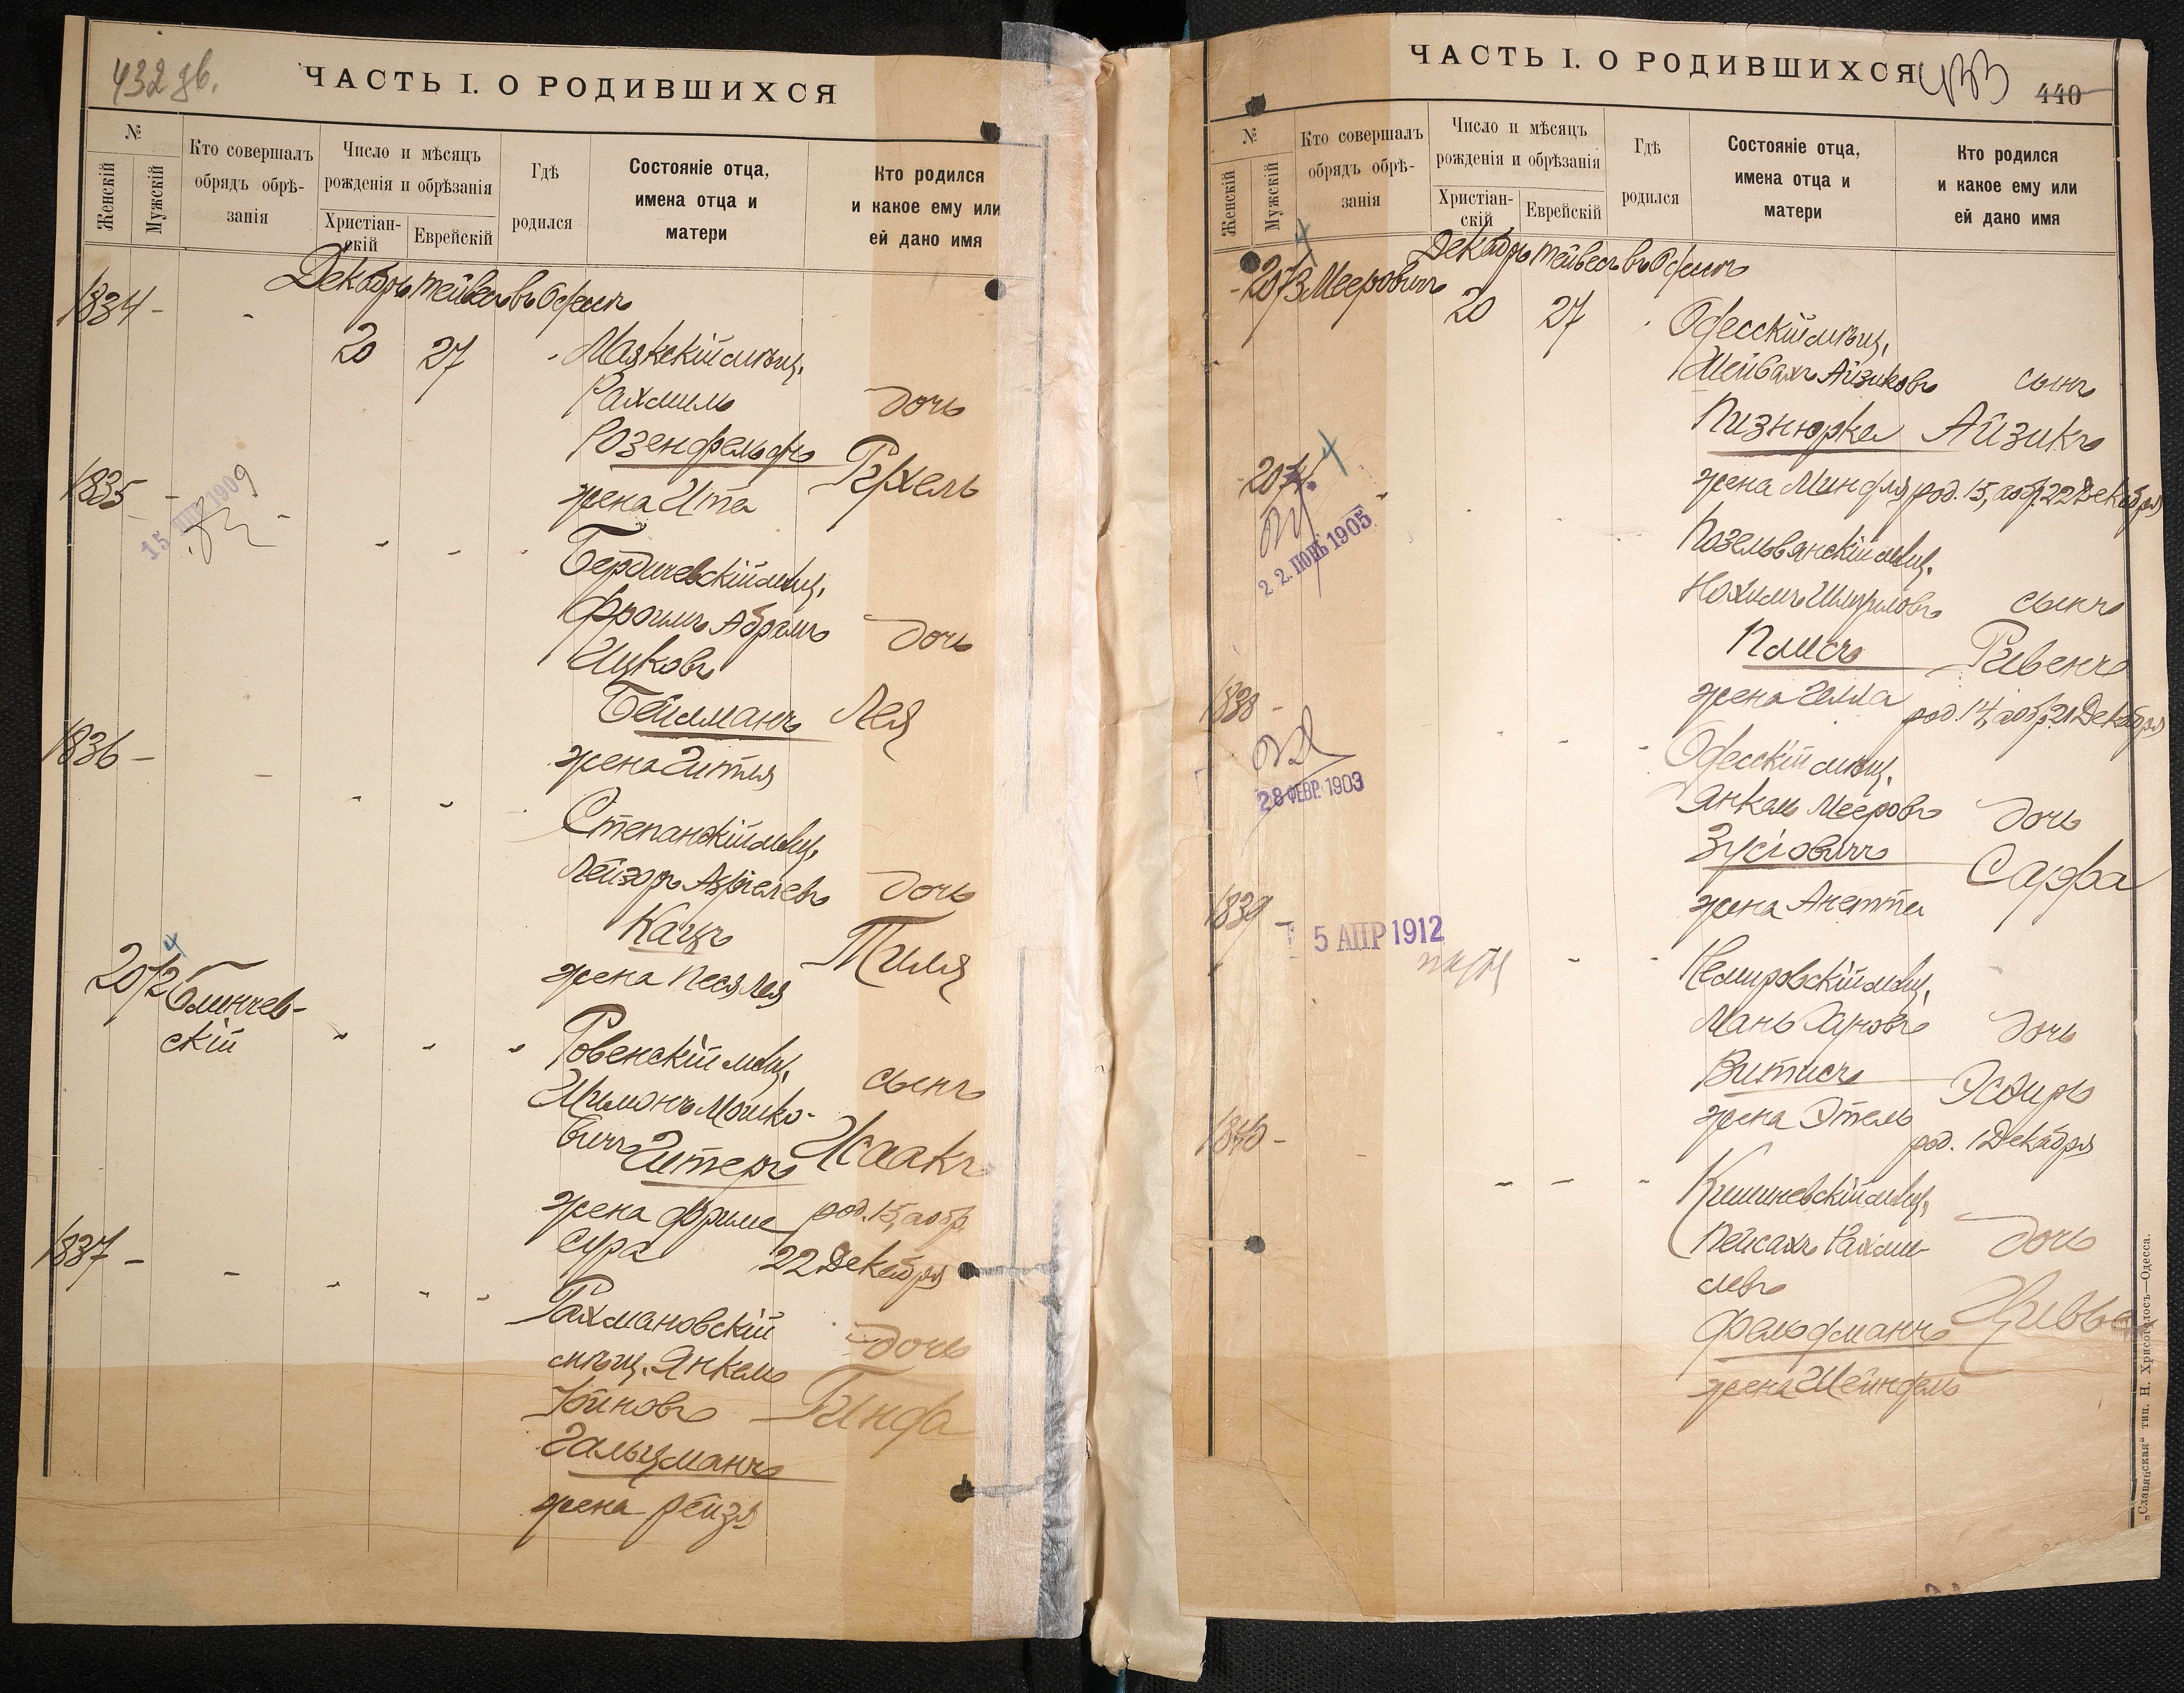 432 об.
ЧАСТЬ I. О РОДИВШИХСЯ
№
Женскій
Мужскій
Кто совершалъ обрядъ обрѣ-
занія
Число и мѣсяцъ
рожденія и обрѣзанія
Христіан-
скій
Еврейскій
Гдѣ
родился
Состояніе отца,
имена отца и
матери
Кто родился
и какое ему или
ей дано имя
Декабрь Тейвесъ въ Одессѣ
1834 -
20 27
Маякскій мѣщ.
Рахмиль
дочь
Розенфельдъ
Рухель
жена Ита
1835 -
15 АПР 1909
Бердичевскій мѣщ.
Фроимъ Абрамъ
дочь
Ицковъ
Бейлманъ
Лея
жена Гитля
1836 -
Степанскій мѣщ.
Лейзоръ Азріелевъ
дочь
Кацъ
Тиля
жена Песя Лея
2072
Блинчев-
скій
Ровенскій мѣщ.
сынъ
Шимонъ Мошко-
вичъ
Гитеръ
Исаакъ
жена Фрима
Сура
род. 15, аобр.
22 Декабря
1837 -
Рахмановскій
мѣщ. Янкель
дочь
Юйновъ
Бинда
Гальцманъ
жена Рейзя
ЧАСТЬ I. О РОДИВШИХСЯ
433
440
№
Женскій
Мужскій
Кто совершалъ
обрядъ обрѣ-
занія
Число и мѣсяцъ
рожденія и обрѣзанія
Христіан-
скій
Еврейскій
Гдѣ
родился
Состояніе отца,
имена отца и
матери
Кто родился
и какое ему или
ей дано имя
Декабрь Тейвесъ въ Одессѣ
2073 Мееровичъ
20 27
Одесскій мѣщ.
Шейвахъ Айзиковъ
сынъ
Пизнюрка
Айзикъ
жена Миндля
род. 15, аобр. 22 Декабря
2074
22 ІЮНЬ 1905
мѣщ.
Нохимъ
сынъ
Плисъ
Рувенъ
жена Гелла
род. 14, аобр. 21 Декабря
1838 -
28 ФЕВР. 1903
Одесскій мѣщ.
Янкель Мееровъ
дочь
Зусіовичъ
Сарра
жена Анетта
1839 -
5 АПР 1912
Немировскій мѣщ.
Мань
дочь
Витисъ
Эсѳирь
жена Этель
род. 1 Декабря
1840 -
Кишиневскій мѣщ.
Пейсахъ Рахми-
левъ
дочь
Фельдманъ
Цивья
жена Шейндель
„Славянская“ тип. Н. Хрисогелосъ—Одесса.